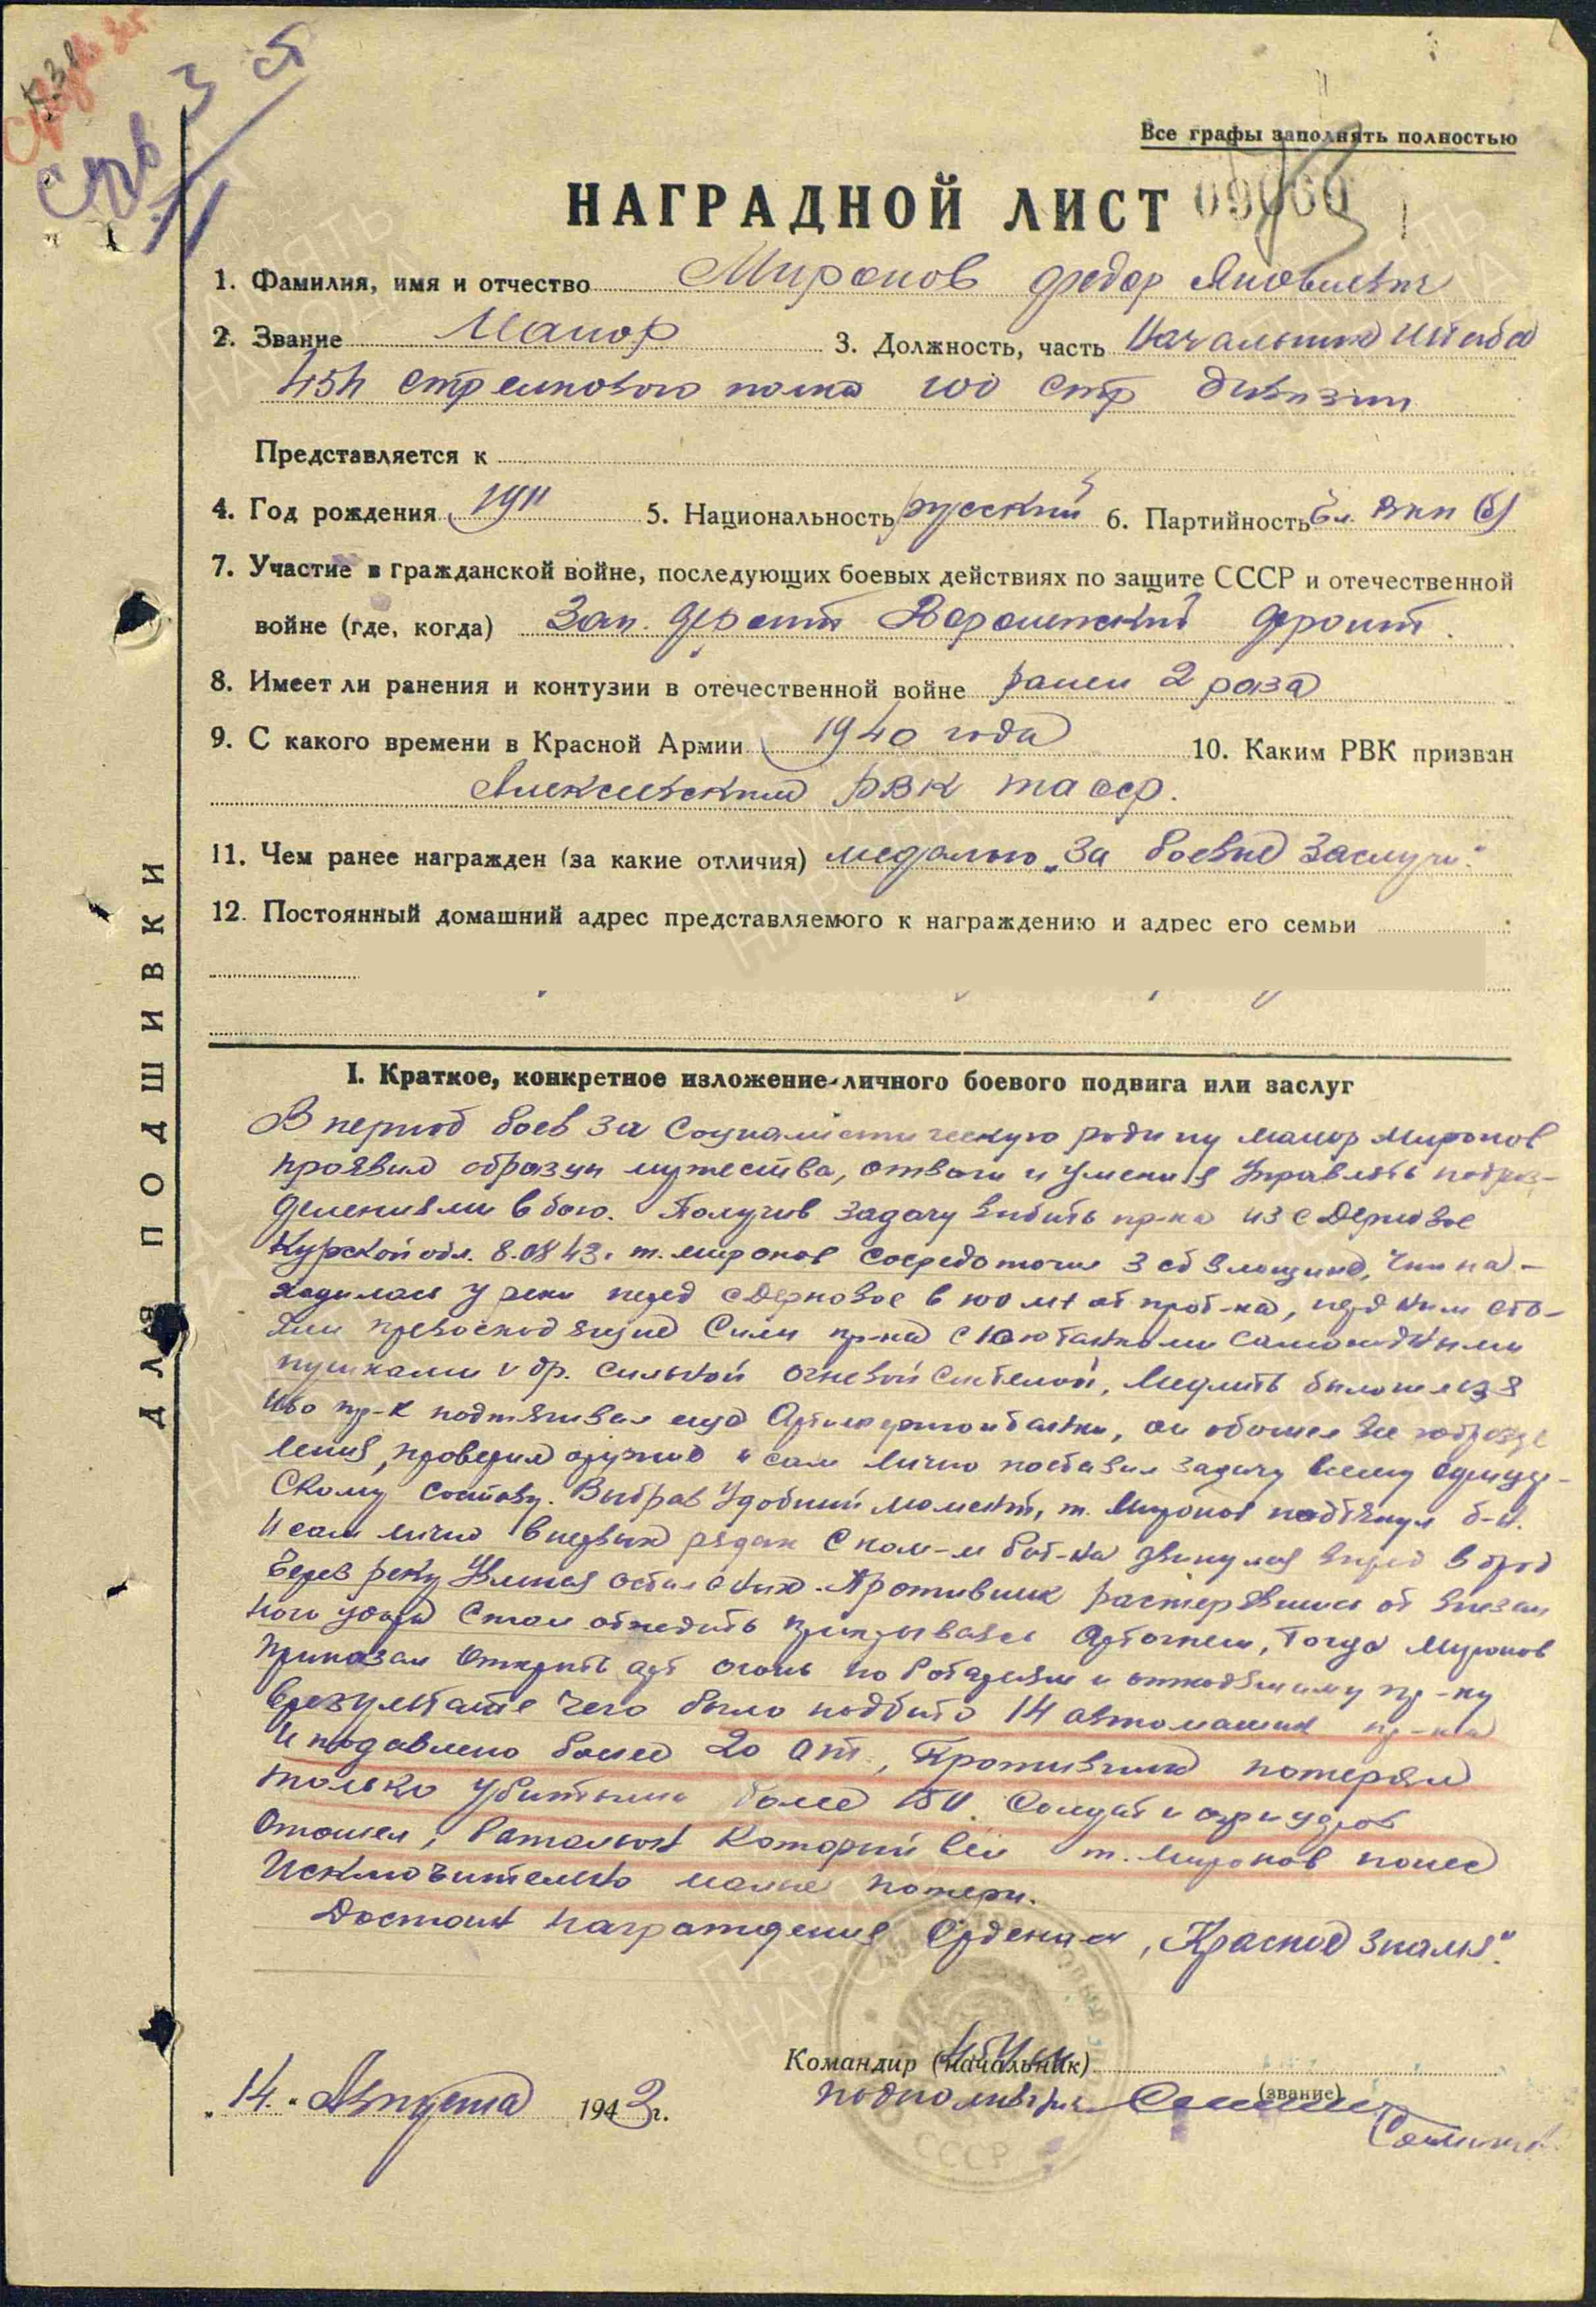 Сув 3 ст
Все графы заполнять полностью
НАГРАДНОЙ ЛИСТ 09060
1. Фамилия, имя и отчество Миронов Федор Яковлевич
2. Звание Маиор 3. Должность, часть Начальник Штаба
454 стрелкового полка 100 стр дивизии
Представляется к
4. Год рождения 1911 5. Национальность русский 6. Партийность Чл. ВКП (б)
7. Участие в гражданской войне, последующих боевых действиях по защите СССР и отечественной
войне (где, когда) Зап. фронт Воронежский фронт.
8. Имеет ли ранения и контузии в отечественной войне ранен 2 раза
9. С какого времени в Красной Армии 1940 года 10. Каким РВК призван
Алексеевским РВК ТАССР.
11. Чем ранее награжден (за какие отличия) медалью „За боевые заслуги“
12. Постоянный домашний адрес представляемого к награждению и адрес его семьи
ДЛЯ ПОДШИВКИ
I. Краткое, конкретное изложение личного боевого подвига или заслуг
В период боев за Социалистическую родину маиор Миронов
проявил образцы мужества, отваги и умения управлять подраз-
делениями в бою. Получив задачу выбить пр-ка из с Дерновое
Курской обл. 8.08 43г. т. Миронов сосредоточил 3 сб в лощине, что на-
ходилась у реки перед с Дерновое в 100 мт от прот-ка, перед ним сто-
яли превосходящие силы пр-ка с 10ю танками самоходными
пушками и др. сильной огневой системой, Медлить было нельзя
ибо пр-к подтягивал еще Артилерию и танки, он обошел все подразде
ления, проверил оружие и сам лично поставил задачу всему офицер-
скому составу. Выбрав удобный момент, т. Миронов подтянул б-н.
и сам лично в первых рядах с ком-м бат-на двинулся вперед в брод
через реку увлекая остальных. Противник растерявшись от внезап
ного удара стал отходить прикрываясь Артогнем, Тогда Миронов
приказал открыть арт огонь по батареям и отходящему пр-ку
врезультате чего было подбито 14 автомашин пр-ка
и подавлено более 20 от., Противник потерял
только убитыми более 150 солдат и офицеров
отошел, батальон который вел т. Миронов понес
исключительно малые потери.
Достоин награждения Орденом „Красное знамя“.
Командир (начальник)
(звание)
подполковник
„14.“ Августа 1943 г.
СССР